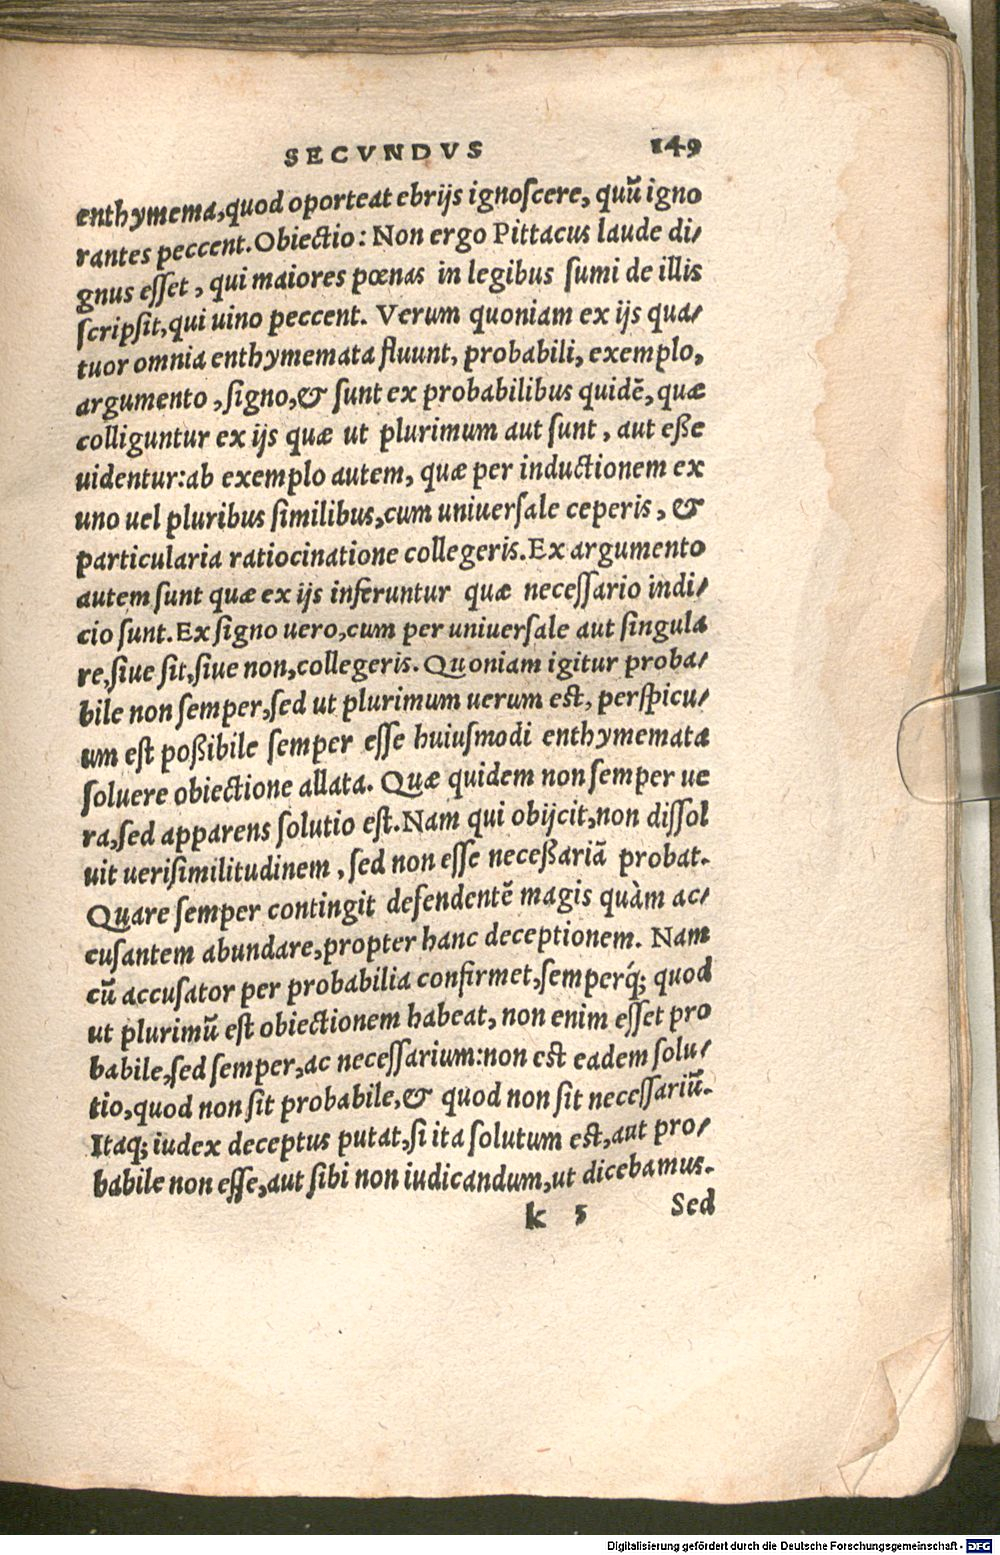 SECVNDVS 149
enthymema,quod oporteat ebrijs ignoſcere, quũ igno
rantes peccent.Obiectio: Non ergo Pittacus laude di/
gnus eſſet, qui maiores pœnas in legibus ſumi de illis
ſcripſit,qui uino peccent. Verum quoniam ex ijs qua/
tuor omnia enthymemata fluunt, probabili, exemplo,
argumento ,ſigno,& ſunt ex probabilibus quidẽ, quæ
colliguntur ex ijs quæ ut plurimum aut ſunt , aut eße
uidentur:ab exemplo autem, quæ per inductionem ex
uno uel pluribus ſimilibus,cum uniuerſale ceperis , &
particularia ratiocinatione collegeris.Ex argumento
autem ſunt quæ ex ijs inferuntur quæ neceſſario indi/
cio ſunt.Ex ſigno uero,cum per uniuerſale aut ſingula
re,ſiue ſit,ſiue non,collegeris. Quoniam igitur proba/
bile non ſemper,ſed ut plurimum uerum est, perſpicu/
um eſt poßibile ſemper eſſe huiusmodi enthymemata
ſoluere obiectione allata. Quæ quidem non ſemper ue
ra,ſed apparens ſolutio eſt.Nam qui obijcit,non diſſol
uit ueriſimilitudinem , ſed non eſſe neceßariã probat.
Quare ſemper contingit defendentẽ magis quàm ac/
cuſantem abundare,propter hanc deceptionem. Nam
cũ accuſator per probabilia confirmet,ſemperq́; quod
ut plurimũ eſt obiectionem habeat, non enim eſſet pro
babile,ſed ſemper,ac neceſſarium:non est eadem ſolu/
tio,quod non ſit probabile,& quod non ſit neceſſariũ.
Itaq; iudex deceptus putat,ſi ita ſolutum eſt,aut pro/
babile non eſſe,aut ſibi non iudicandum,ut dicebamus.
k 5 Sed
Digitalisierung gefördert durch die Deutsche Forschungsgemeinschaft - DFG